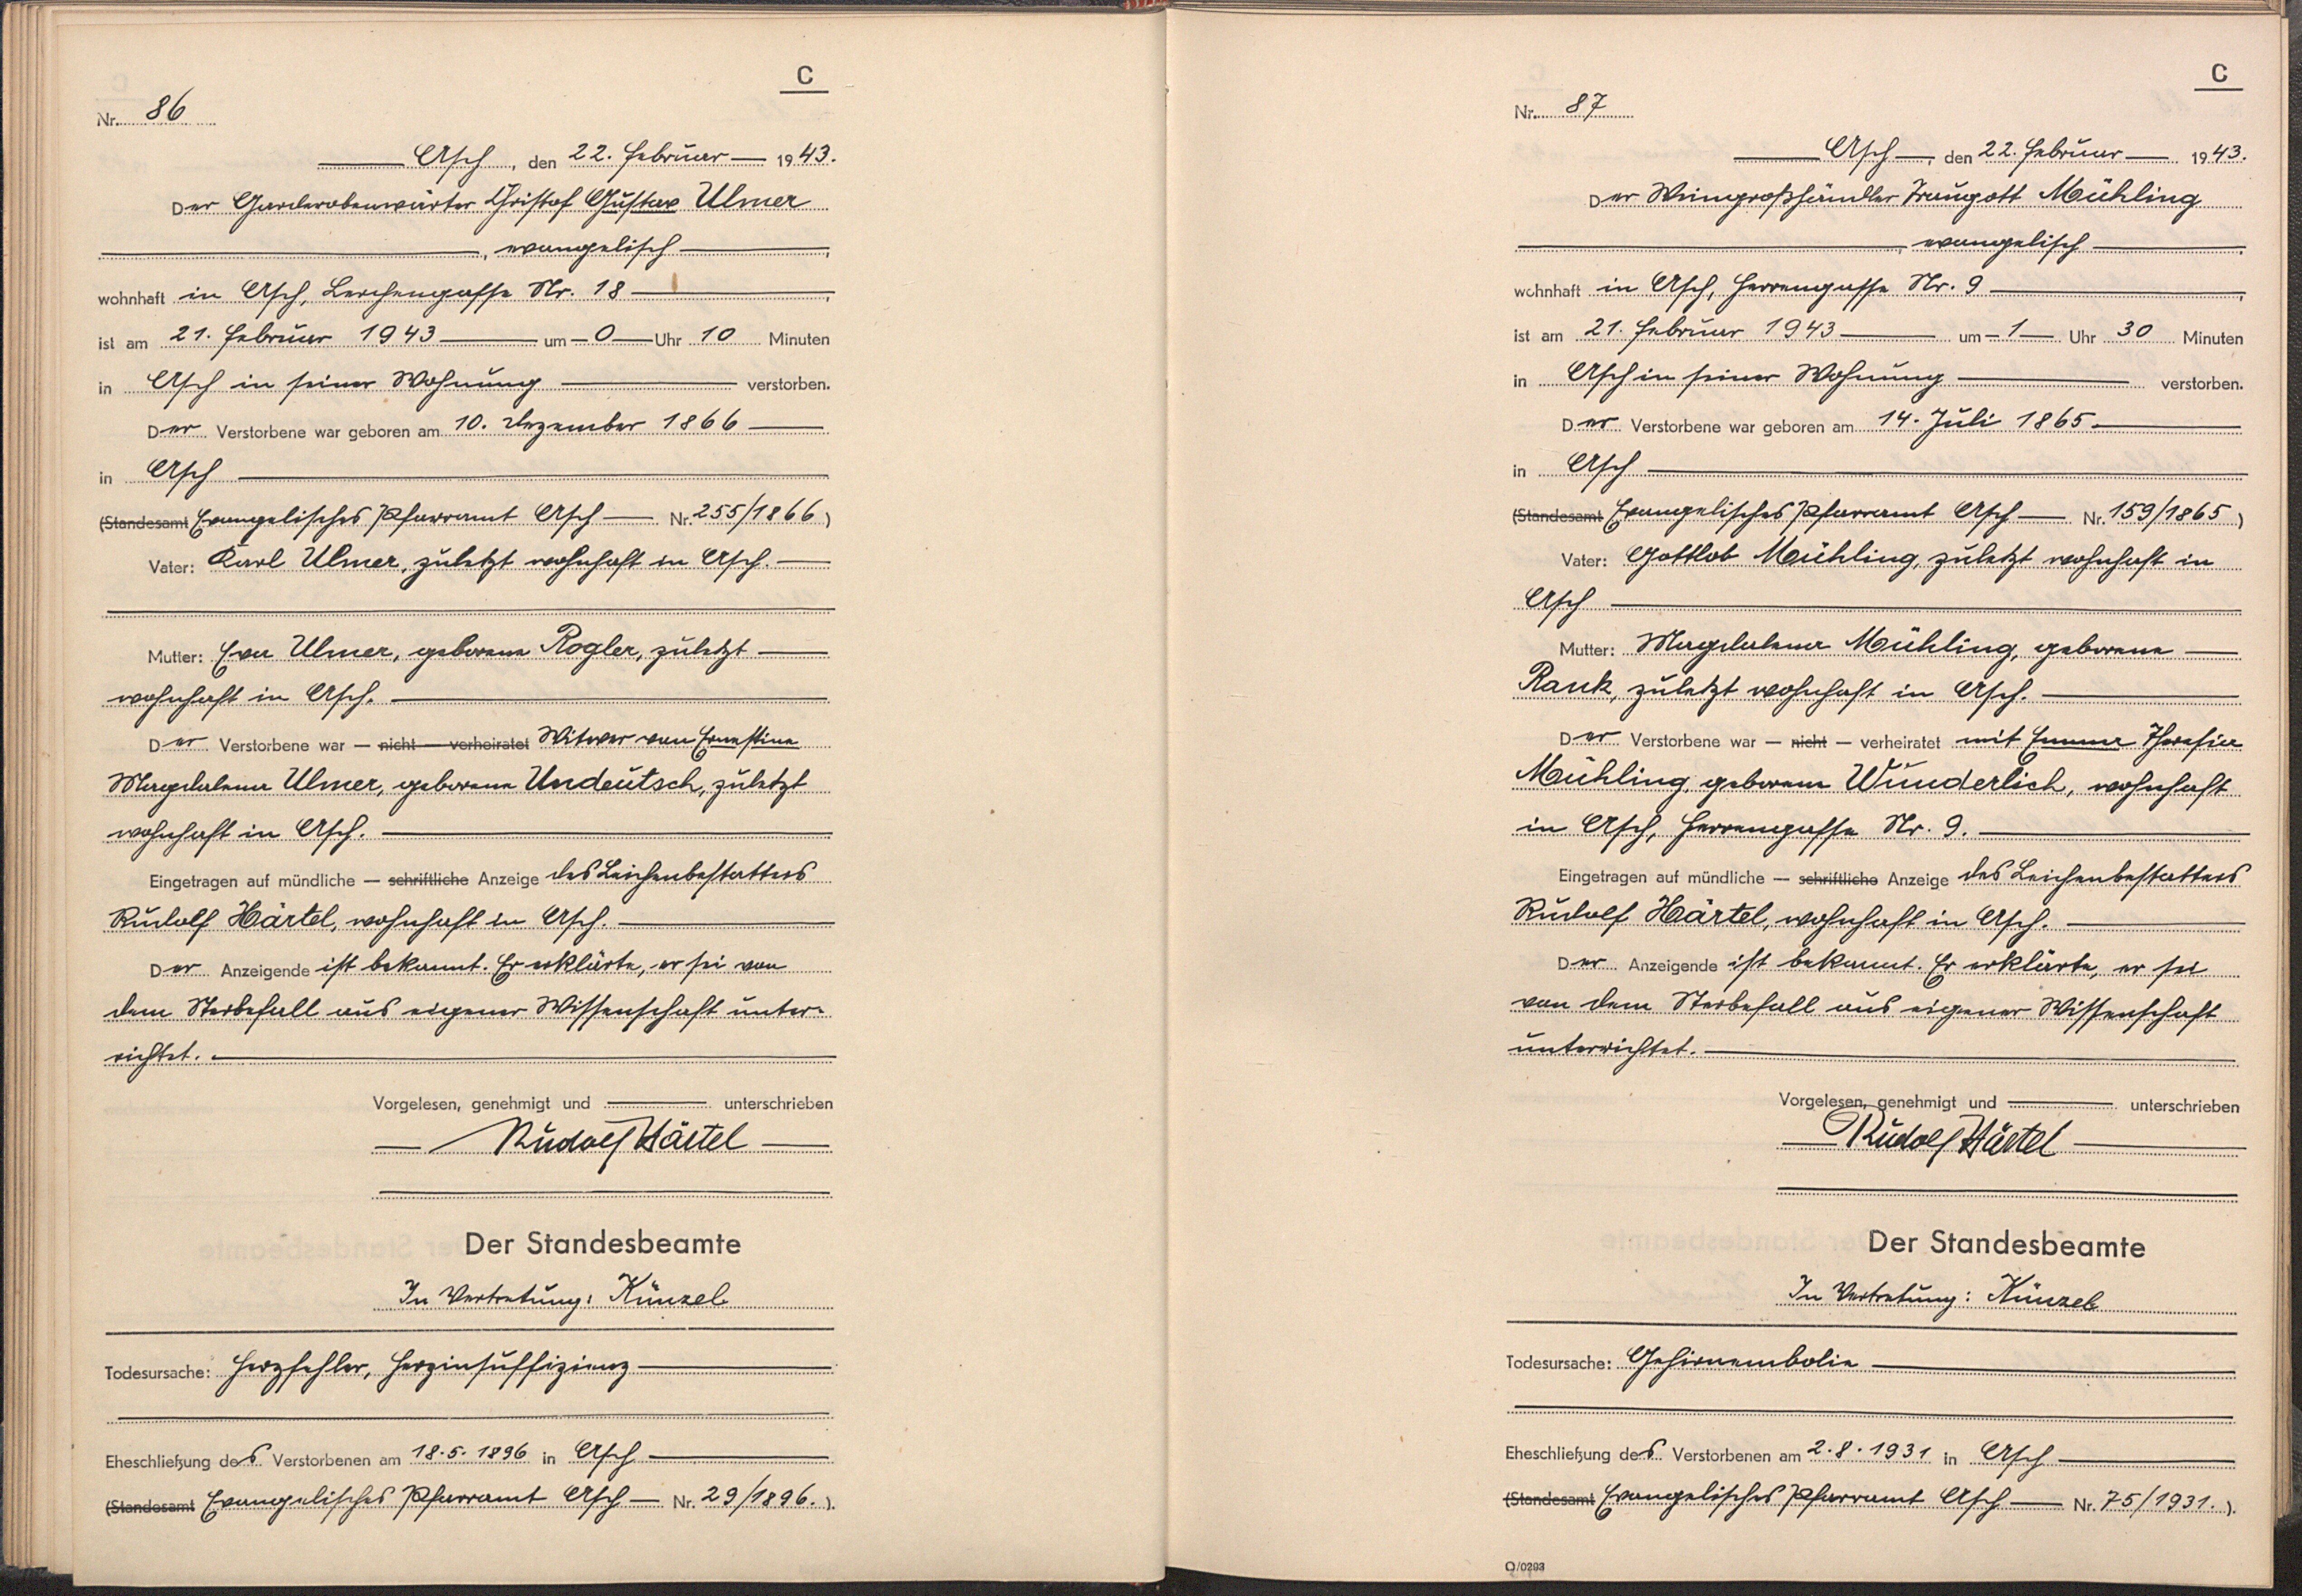 C
Nr. 86
Asch, den 22. Februar 1943.
Der Garderobenwärter Christof Gustav Ulmer
, evangelisch,
wohnhaft in Asch, Lerchengasse Nr. 18,
ist am 21. Februar 1943 um 0 Uhr 10 Minuten
in Asch in seiner Wohnung verstorben.
Der Verstorbene war geboren am 10. Dezember 1866
in Asch
(Standesamt Evangelisches Pfarramt Asch Nr. 255/1866)
Vater: Karl Ulmer, zuletzt wohnhaft in Asch.
Mutter: Eva Ulmer, geborene Rogler, zuletzt
wohnhaft in Asch.
Der Verstorbene war — nicht — verheiratet Witwer von Ernestine
Magdalena Ulmer, geborene Undeutsch, zuletzt
wohnhaft in Asch.
Eingetragen auf mündliche — schriftliche Anzeige des Leichenbestatters
Rudolf Härtel, wohnhaft in Asch.
Der Anzeigende ist bekannt. Er erklärte, er sei von
dem Sterbefall aus eigener Wissenschaft unter-
richtet.
Vorgelesen, genehmigt und unterschrieben
Rudolf Härtel
Der Standesbeamte
In Vertretung: Künzel
Todesursache: Herzfehler, Herzinsuffizienz
Eheschließung des Verstorbenen am 18.5.1896 in Asch
(Standesamt Evangelisches Pfarramt Asch Nr. 29/1896.).
C
Nr. 87
Asch, den 22. Februar 1943.
Der Weingroßhändler Traugott Mühling
, evangelisch,
wohnhaft in Asch, Herrengasse Nr. 9,
ist am 21. Februar 1943 um 1 Uhr 30 Minuten
in Asch in seiner Wohnung verstorben.
Der Verstorbene war geboren am 14. Juli 1865
in Asch
(Standesamt Evangelisches Pfarramt Asch Nr. 159/1865)
Vater: Gottlob Mühling, zuletzt wohnhaft in
Asch
Mutter: Magdalena Mühling, geborene
Rank, zuletzt wohnhaft in Asch.
Der Verstorbene war — nicht — verheiratet mit Emma Theresia
Mühling, geborene Wunderlich, wohnhaft
in Asch, Herrengasse Nr. 9.
Eingetragen auf mündliche — schriftliche Anzeige des Leichenbestatters
Rudolf Härtel, wohnhaft in Asch.
Der Anzeigende ist bekannt. Er erklärte, er sei
von dem Sterbefall aus eigener Wissenschaft
unterrichtet.
Vorgelesen, genehmigt und unterschrieben
Rudolf Härtel
Der Standesbeamte
In Vertretung: Künzel
Todesursache: Gehirnembolie
Eheschließung des Verstorbenen am 2.8.1931 in Asch
(Standesamt Evangelisches Pfarramt Asch Nr. 75/1931.).
Q/0293